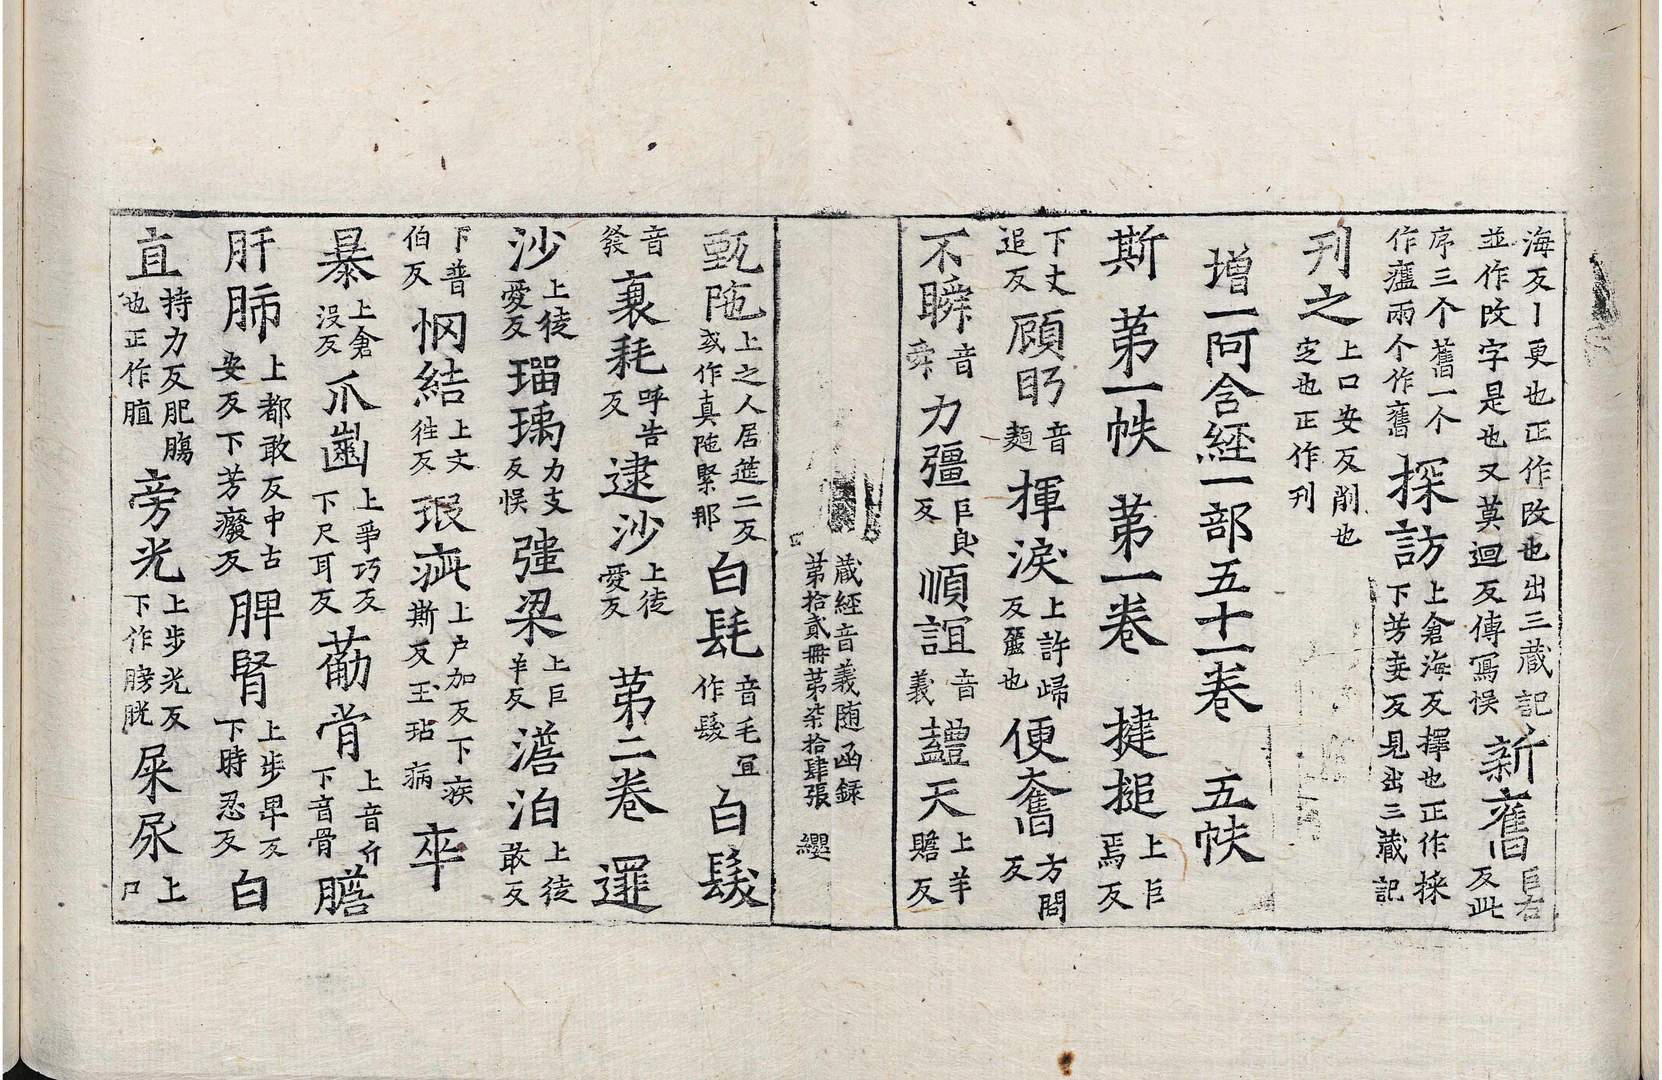 海反丨更也正作改也出三藏記並作改字是也又莫迴反傳寫悮新舊巨右反此
序三个舊一个作𤅀兩个作舊探訪上倉海反擇也正作採下芳妄反見出三藏記
刊之上口安反削也定也正作刋
增一阿含經一部五十一卷 五帙
斯 苐一帙 苐一卷 揵搥上巨焉反
下丈追反顧眄音麵揮淚上許歸反灑也便奮方問反
不瞬音舜力彊巨良反順誼音義豔天上羊贍反
藏經音義随函録
苐拾貳冊苐柒拾肆張 纓
甄陁上之人居延二反或作真陁緊那白髦音毛冝作髮白髮
音發裏耗呼告反逮沙上徒愛反 苐二卷 邏
沙上徒愛反瑠瑀力支反悮彊梁上巨羊反澹泊上徒敢反
下普伯反惘結上文徃反瑕疵上户加反下疾斯反玉玷病 卒
暴上倉没反爪齒上爭巧反下尺耳反觔骨上音斤下音骨膽
肝肺上都敢反中古安反下芳癈反脾腎上步卑反下時忍反白
直持力反肥膓也正作膱旁光上步光反下作膀胱屎尿上尸